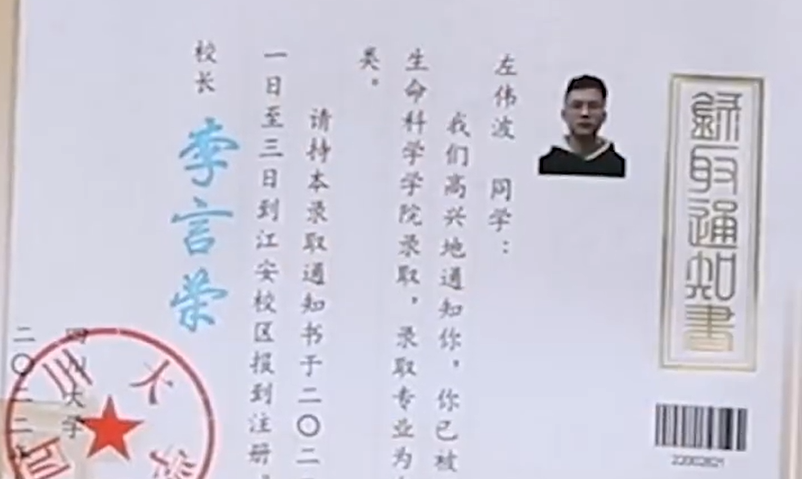 录取通知书
左伟波 同学：
我们高兴地通知你，你已被
生命科学学院录取，录取专业为
类。
请持本录取通知书于二〇二
一日至三日到江安校区报到注册
校长 李言荣
四川大学
二〇二二